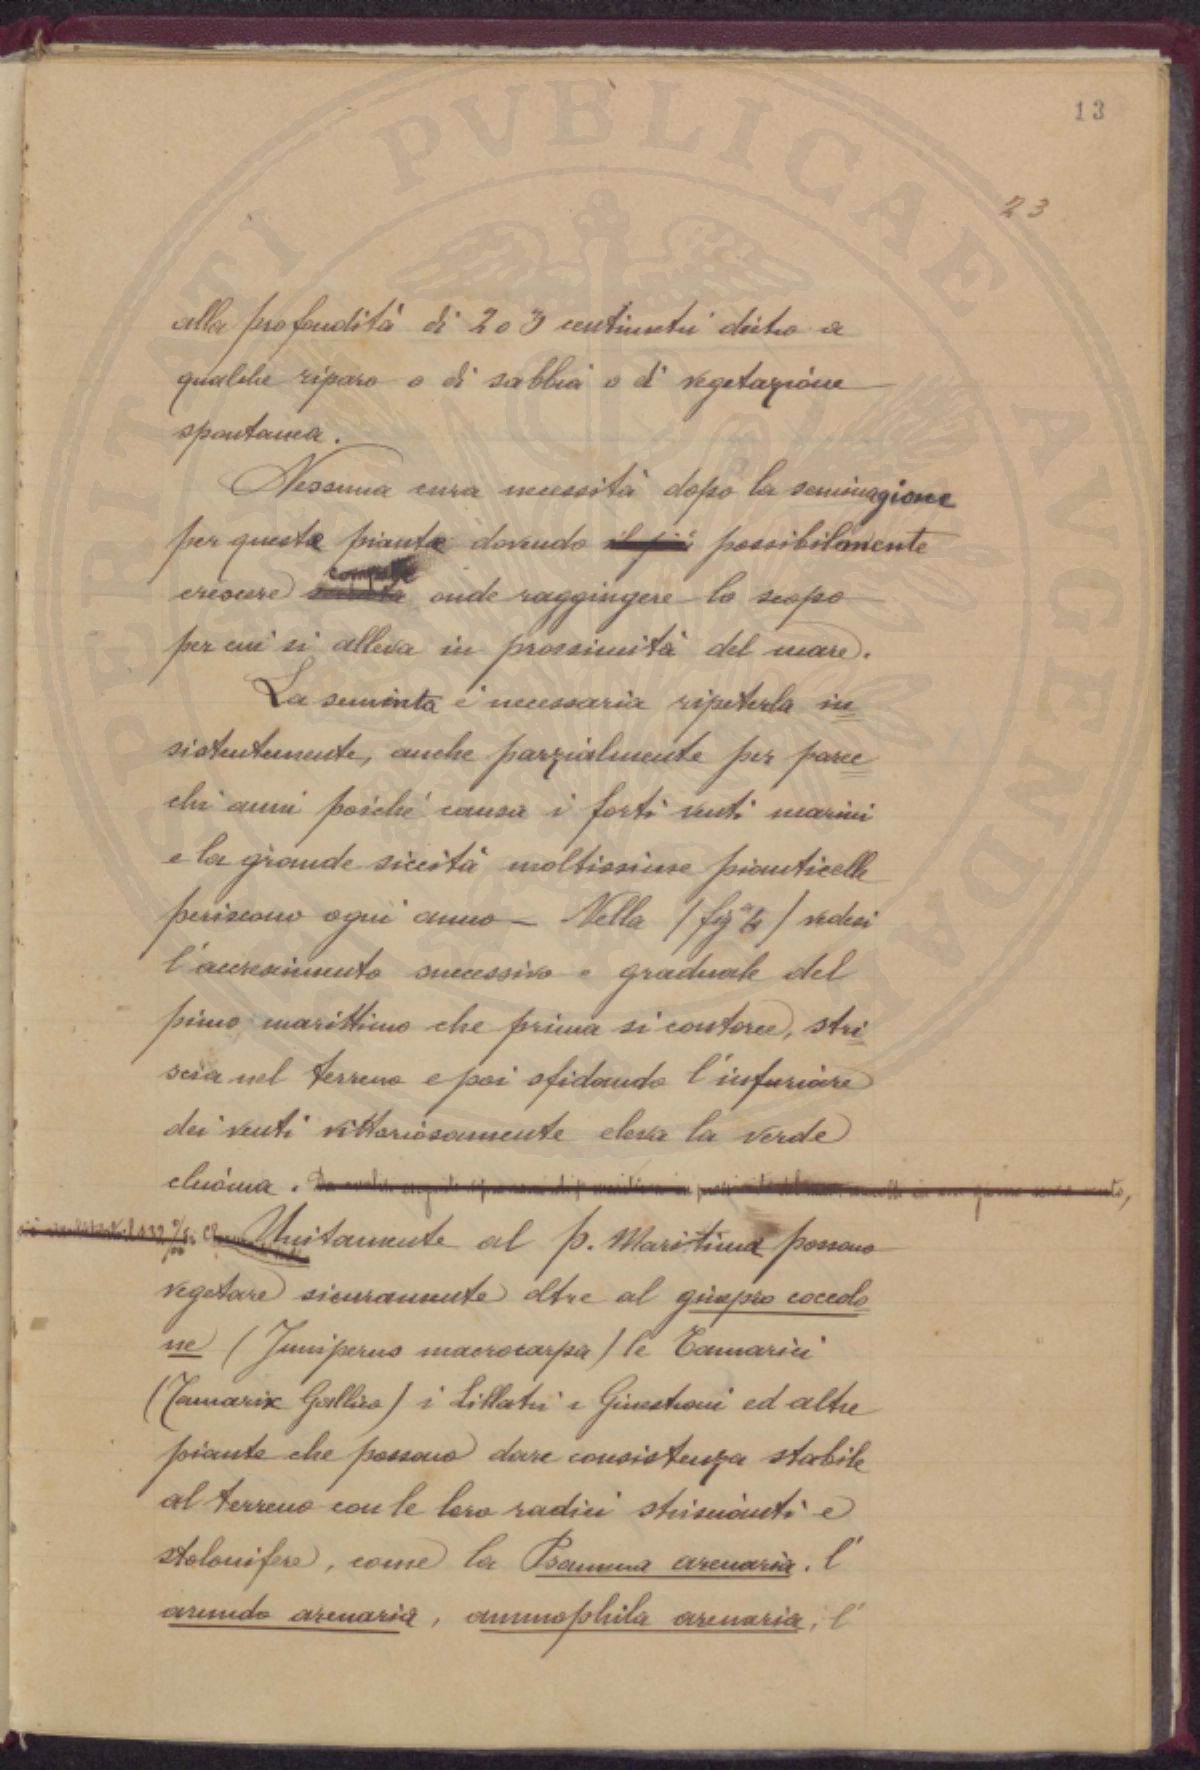 13
23
alla profondità di 2 o 3 centimetri dietro a
qualche riparo o di sabbia o di vegetazione
spontanea.
Nessuna cura necessità dopo la seminagione
per questa pianta dovendo il più possibilmente
crescere compatte onde raggiungere lo scopo
per cui si alleva in prossimità del mare.
La seminta è necessaria ripeterla in=
sistentemente, anche parzialmente per parec=
chi anni poiché causa i forti venti marini
e la grande siccità moltissime pianticelle
periscono ogni anno — Nella / fig / vedesi
l'accrescimento successivo e graduale del
pino marittimo che prima si contorce, stri=
scia nel terreno e poi sfidando l'infuriare
dei venti vittoriosamente eleva la verde
chioma.
Unitamente al p. Maritima possono
vegetare sicuramente oltre al ginepro coccolo=
ne (Juniperus macrocarpa) le Tamarici
(Tamarix Gallica) i Lillatri e Ginestroni ed altre
piante che possono dare consistenza stabile
al terreno con le loro radici striscianti e
stolonifere, come la Psamma arenaria, l'
arundo arenaria, ammophila arenaria, l'
PVBLICAE